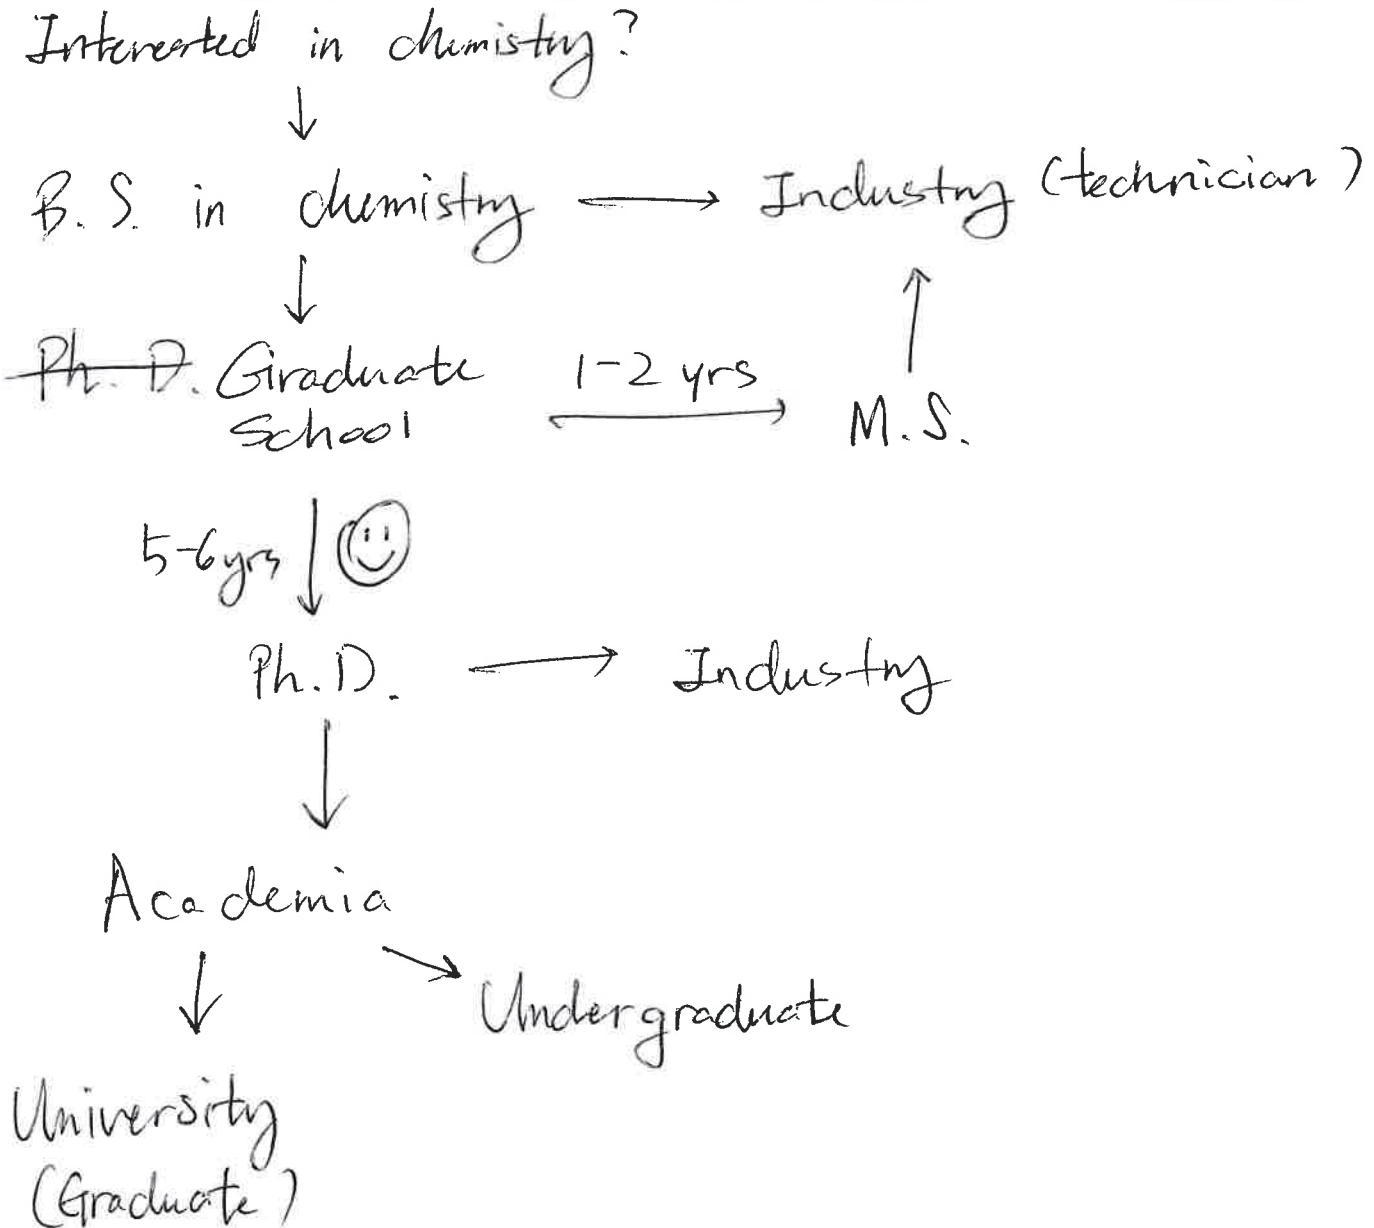 Interested in chemistry?
B. S. in chemistry → Industry (technician)
Ph. D. Graduate School
1-2 yrs
M.S.
5-6 yrs
Ph.D. → Industry
Academia
Undergraduate
University
(Graduate)